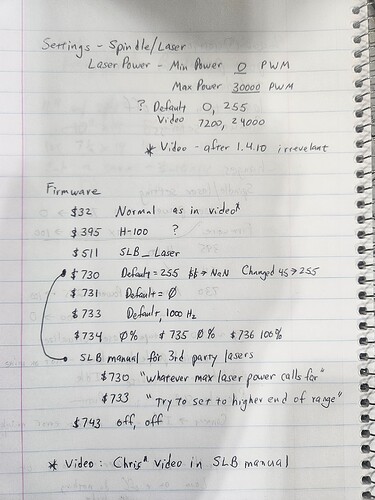 Settings - Spindle/Laser
Laser Power - Min Power 0 PWM
Max Power 30000 PWM
? Default 0, 255
Video 7200, 24000
* Video - after 1.4.10 irrevelant
Firmware
$32 Normal as in video*
$395 H-100 ?
$511 SLB_Laser
$730 Default = 255 $$ → NaN Changed 45 → 255
$731 Default = Ø
$733 Default, 1000 Hz
$734 0% $735 0% $736 100%
SLB manual for 3rd party lasers
$730 "Whatever max laser power calls for"
$733 "Try to set to higher end of range"
$743 off, off
* Video: Chris^ video in SLB manual